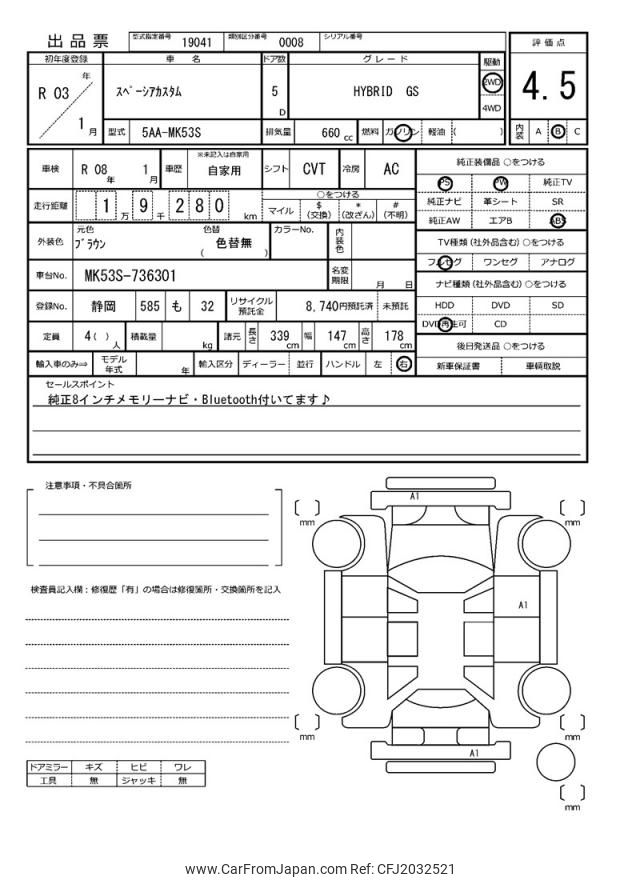 出品票 型式指定番号 19041 類別区分番号 0008 シリアル番号
初年度登録 車名 ドア数 グレード 駆動 評価点
R 03 年 1 月 スペーシアカスタム 5 D HYBRID GS 2WD 4WD 4.5
型式 5AA-MK53S 排気量 660 cc 燃料 ガソリン 軽油 ( ) 内装 A B C
車検 R 08 年 1 月 車歴 ※未記入は自家用 自家用 シフト CVT 冷房 AC
純正装備品 ○をつける
PS PW 純正TV
純正ナビ 革シート SR
純正AW エアB ABS
走行距離 1 万 9 千 2 8 0 km ○をつける
マイル $ (交換) * (改ざん) # (不明)
外装色 元色 ブラウン 色替 ( 色替無 ) カラーNo. 内装色
TV種類 (社外品含む) ○をつける
フルセグ ワンセグ アナログ
車台No. MK53S-736301 名変期限 月 日
ナビ種類 (社外品含む) ○をつける
HDD DVD SD
DVD再生可 CD
登録No. 静岡 585 も 32 リサイクル預託金 8,740円預託済 未預託
定員 4 ( ) 人 積載量 kg 諸元 長さ 339 cm 幅 147 cm 高さ 178 cm
後日発送品 ○をつける
新車保証書 車輌取説
輸入車のみ⇒ モデル年式 年 輸入区分 ディーラー 並行 ハンドル 左 右
セールスポイント
純正8インチメモリーナビ・Bluetooth付いてます♪
注意事項・不具合箇所
検査員記入欄：修復歴「有」の場合は修復箇所・交換箇所を記入
A1
mm
mm
A1
mm
mm
A1
mm
ドアミラー キズ ヒビ ワレ
工具 無 ジャッキ 無
www.CarFromJapan.com Ref: CFJ2032521